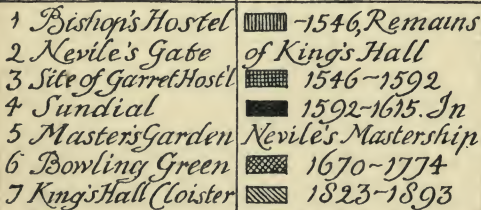 1 Bishop's Hostel
2 Nevile's Gate
3 Site of Garret Host'l
4 Sundial
5 Master's Garden
6 Bowling Green
7 King's Hall Cloister
-1546, Remains
of King's Hall
1546-1592
1592-1615. In
Nevile's Mastership
1670-1774
1823-1893